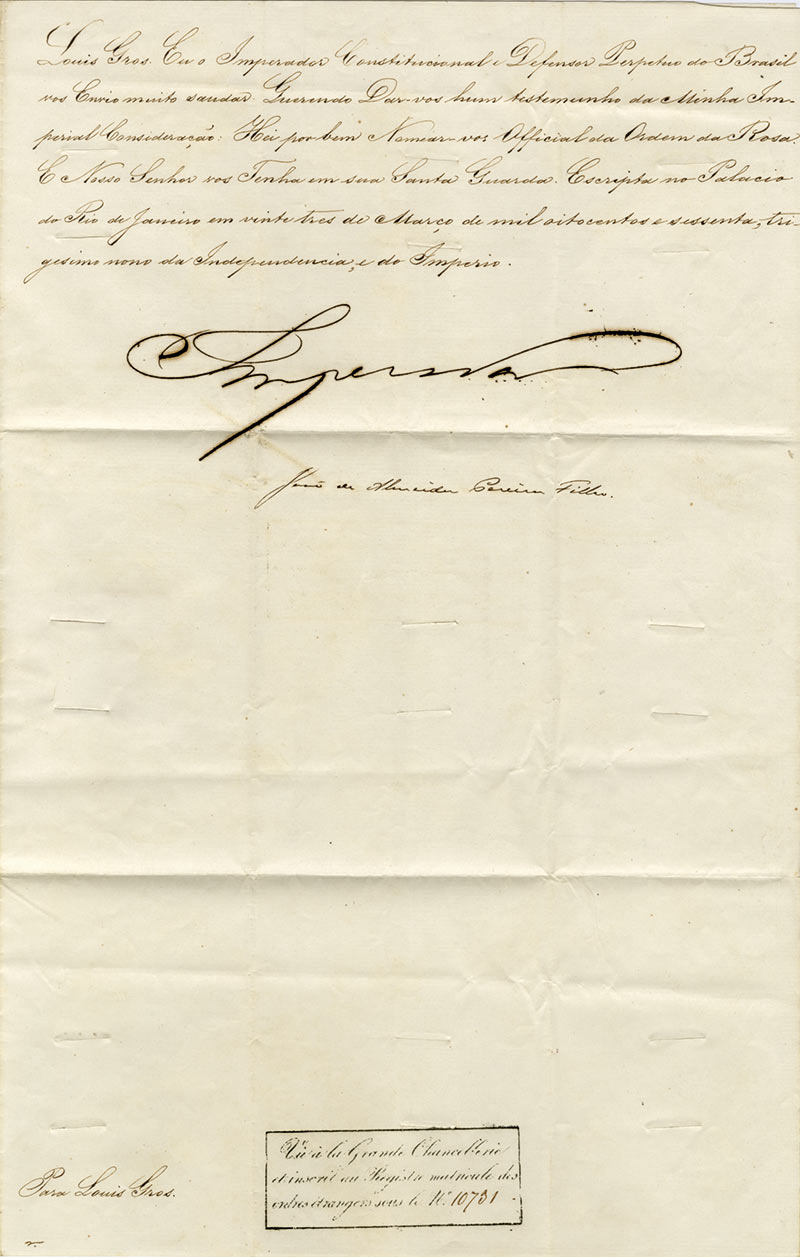 Louis Gros. Eu o Imperador Constitucional e Defensor Perpetuo do Brasil
vos Envio muito saudar. Querendo Dar-vos hum testemunho da Minha Im-
perial Consideração: Hei por bem Nomear-vos Official da Ordem da Rosa.
E Nosso Senhor vos Tenha em sua Santa Guarda. Escripta no Palacio
do Rio de Janeiro em vinte tres de Março de mil oitocentos e sessenta, tri-
gesimo nono da Independencia, e do Imperio.
Imperador
João de Almeida Pereira Filho.
Vu à la Grande Chancellerie
et inscrit au Registre matricule des
ordres étrangers sous le No. 10731
Para Louis Gros.